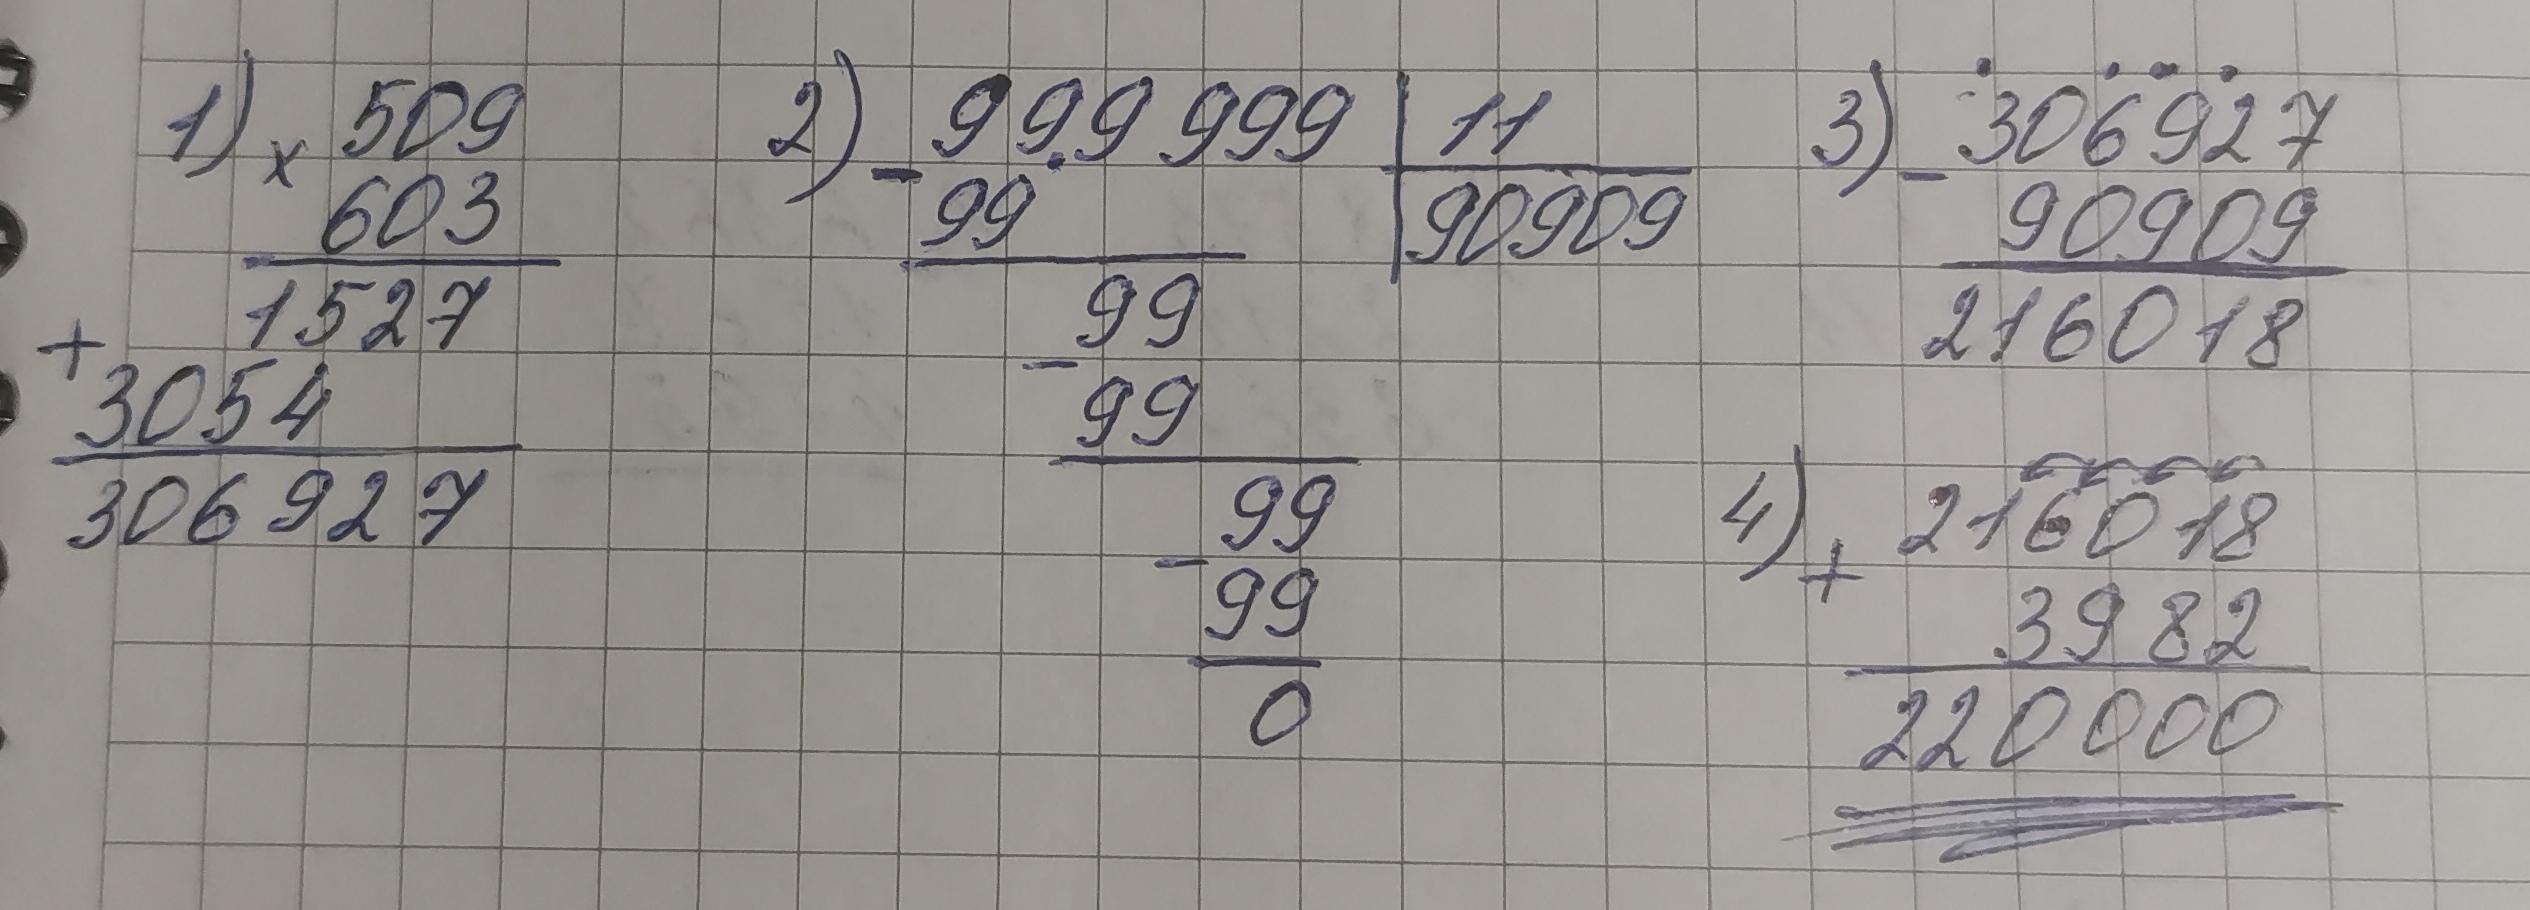 1) × 509
603
1527
+
3054
306927
2) - 999999 | 11
99 | 90909
99
-
99
99
-
99
0
3) - 306927
90909
216018
4) + 216018
3982
220000